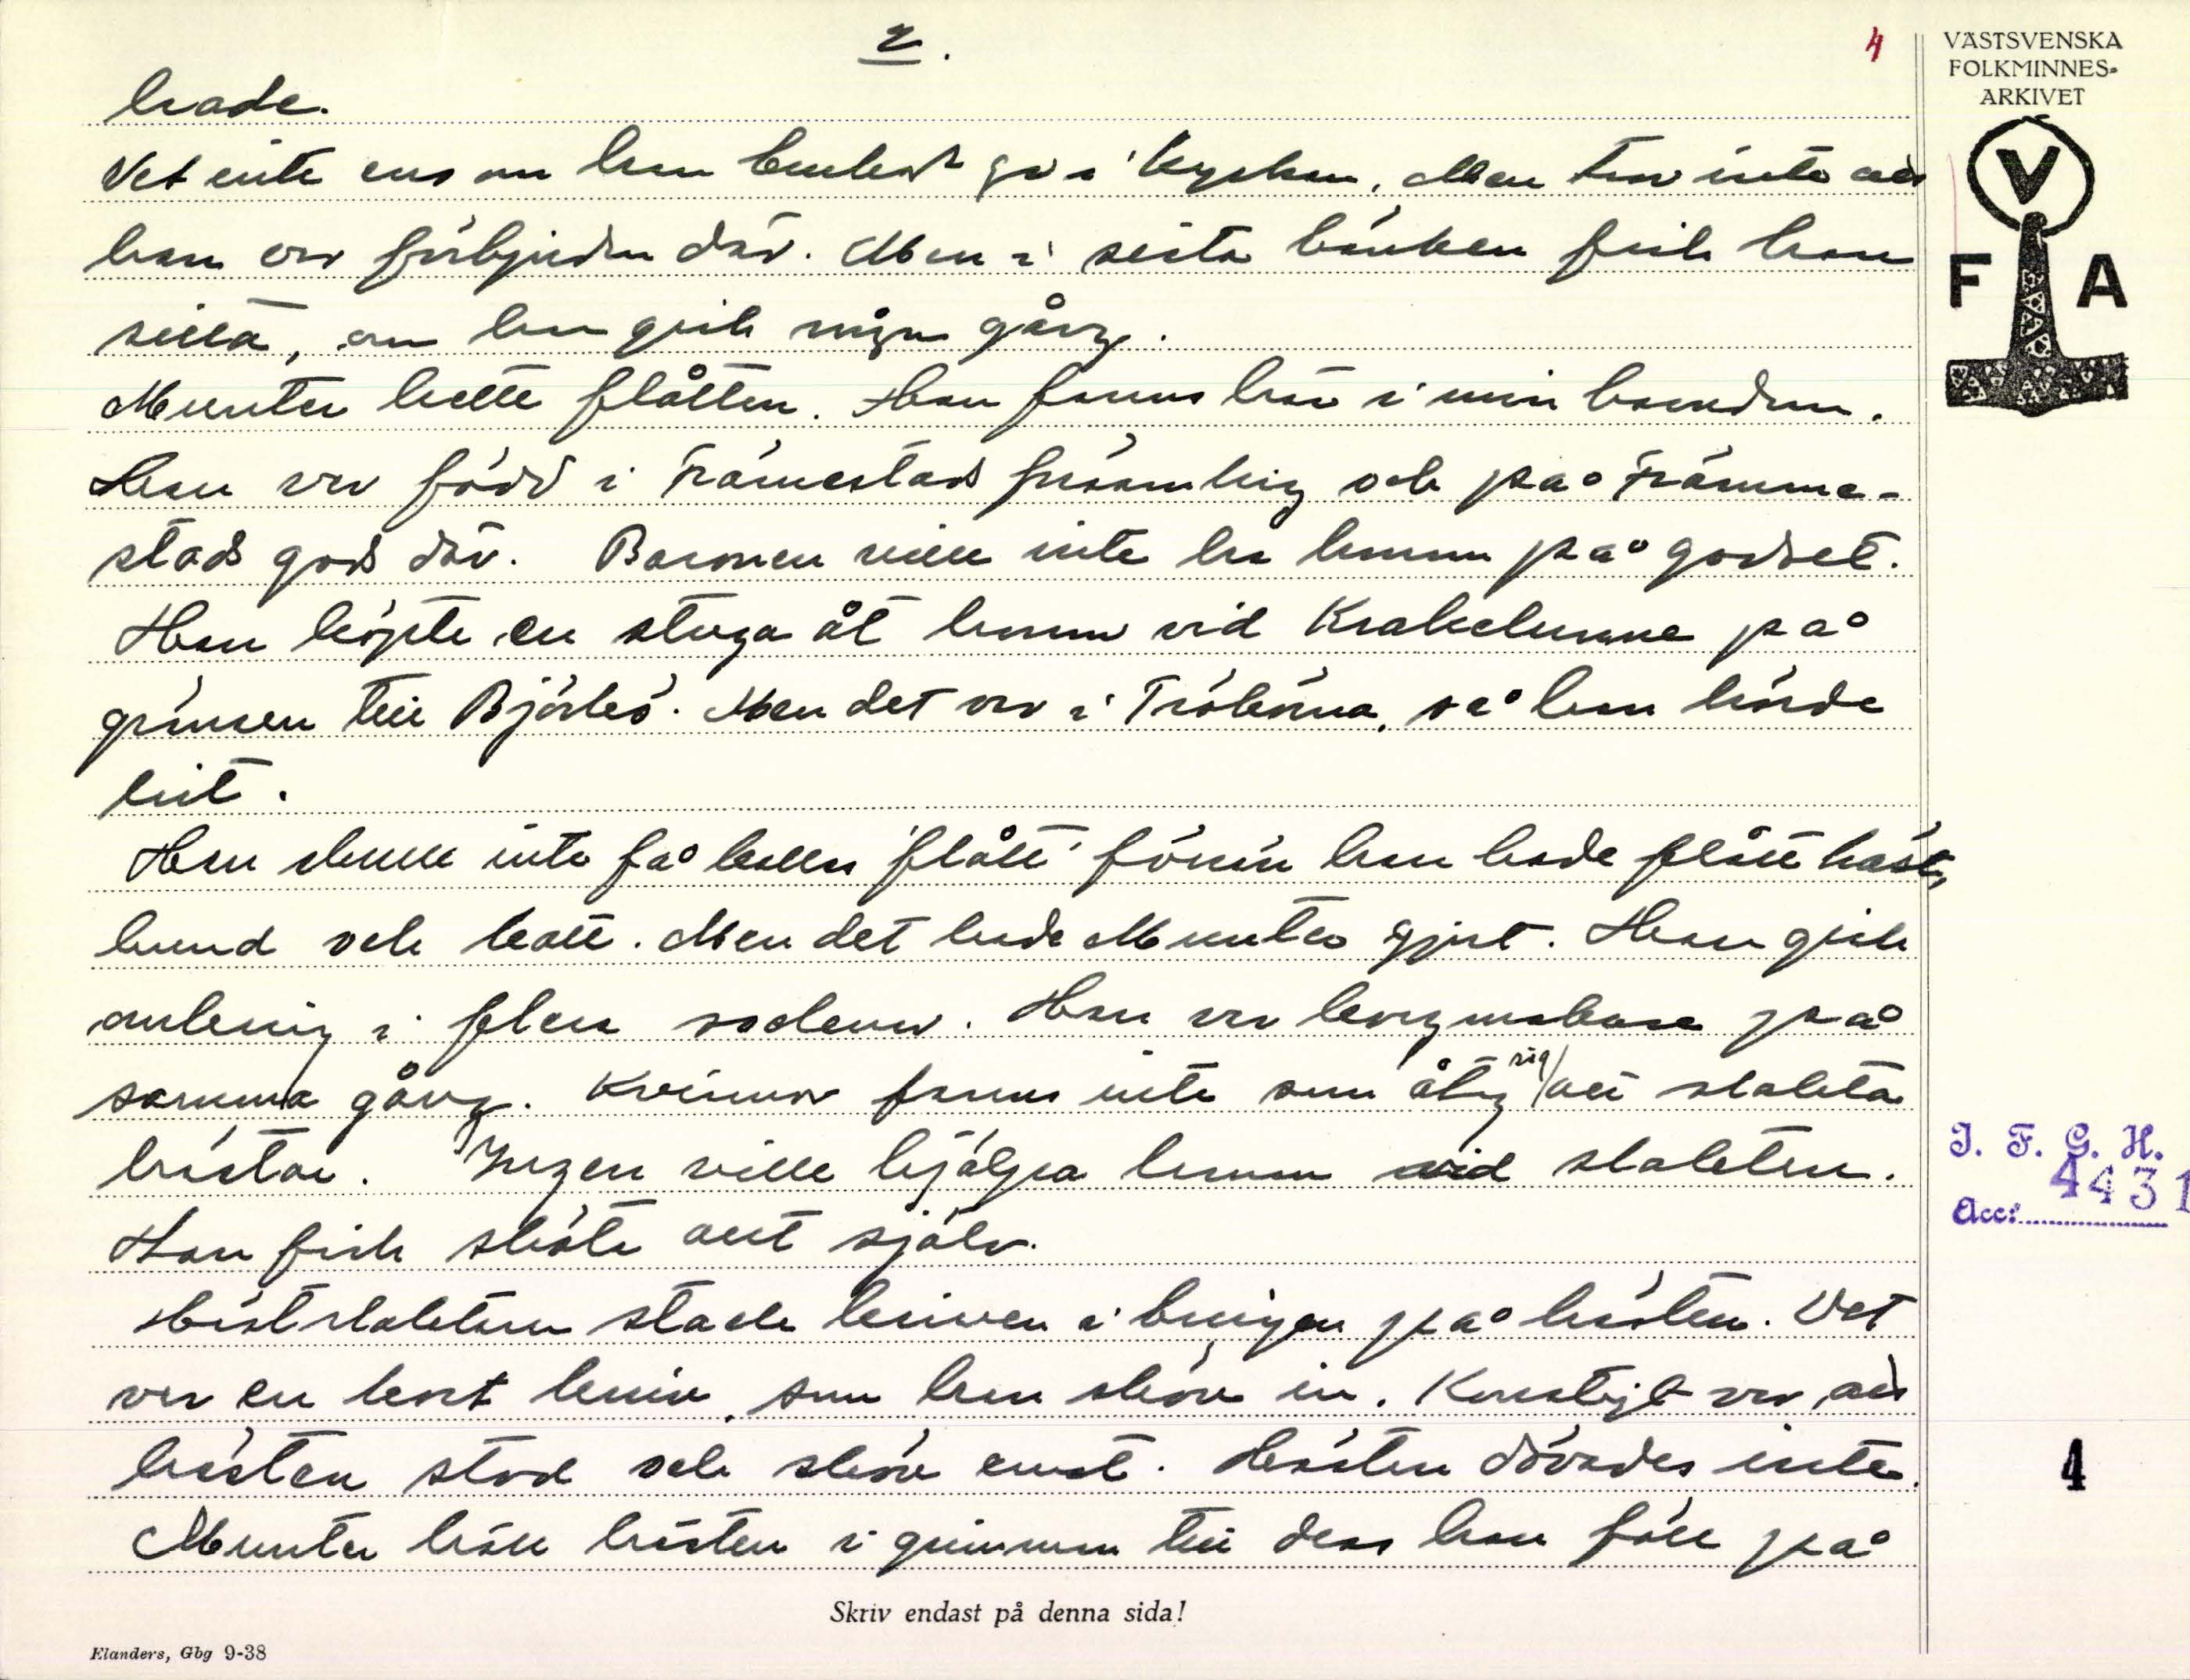 2.
4
VÄSTSVENSKA
FOLKMINNES-
ARKIVET
hade.
Vet inte ens om han brukat gå i kyrkan. Men tror inte att
han var förbjuden där. Men i sista bänken fick han
sitta, om han gick någon gång.
Munter hette flåtten. Han fanns här i min barndom.
Han var född i Främestads församling och på Främme-
stads gods där. Baronen ville inte ha honom på godset.
Han köpte en stuga åt honom vid Krakelunna på
gränsen till Bjärbo. Men det var i Tråbänna, så han hörde
hit.
Han skulle inte få kallas 'flått' förrän han hade flått häst,
hund och katt. Men det hade Munter gjort. Han gick
omkring i flera socknar. Han var korgmakare på
samma gång. Kvinnor fanns inte som åtog sig att slakta
hästar. Ingen ville hjälpa honom vid slakten.
Han fick sköta allt själv.
Hästslaktaren stack kniven i bringan på hästen. Det
var en kort kniv, som han skar in. Konstigt var att
hästen stod och skar emot. Hästen dövades inte.
Munter höll hästen i grimman till dess han föll på
V
F A
I. F. G. H.
Acc: 4431
4
Skriv endast på denna sida!
Elanders, Gbg 9-38